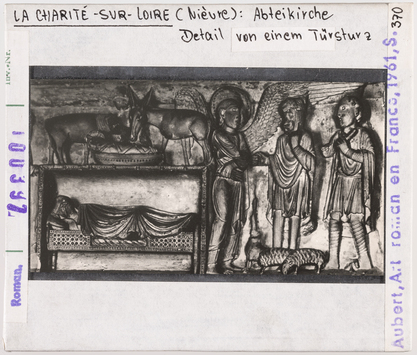 LA CHARITÉ-SUR-LOIRE (Nièvre): Abteikirche
Detail von einem Türsturz
Aubert, Art roman en France, 1961, S. 370
100392
Roman.